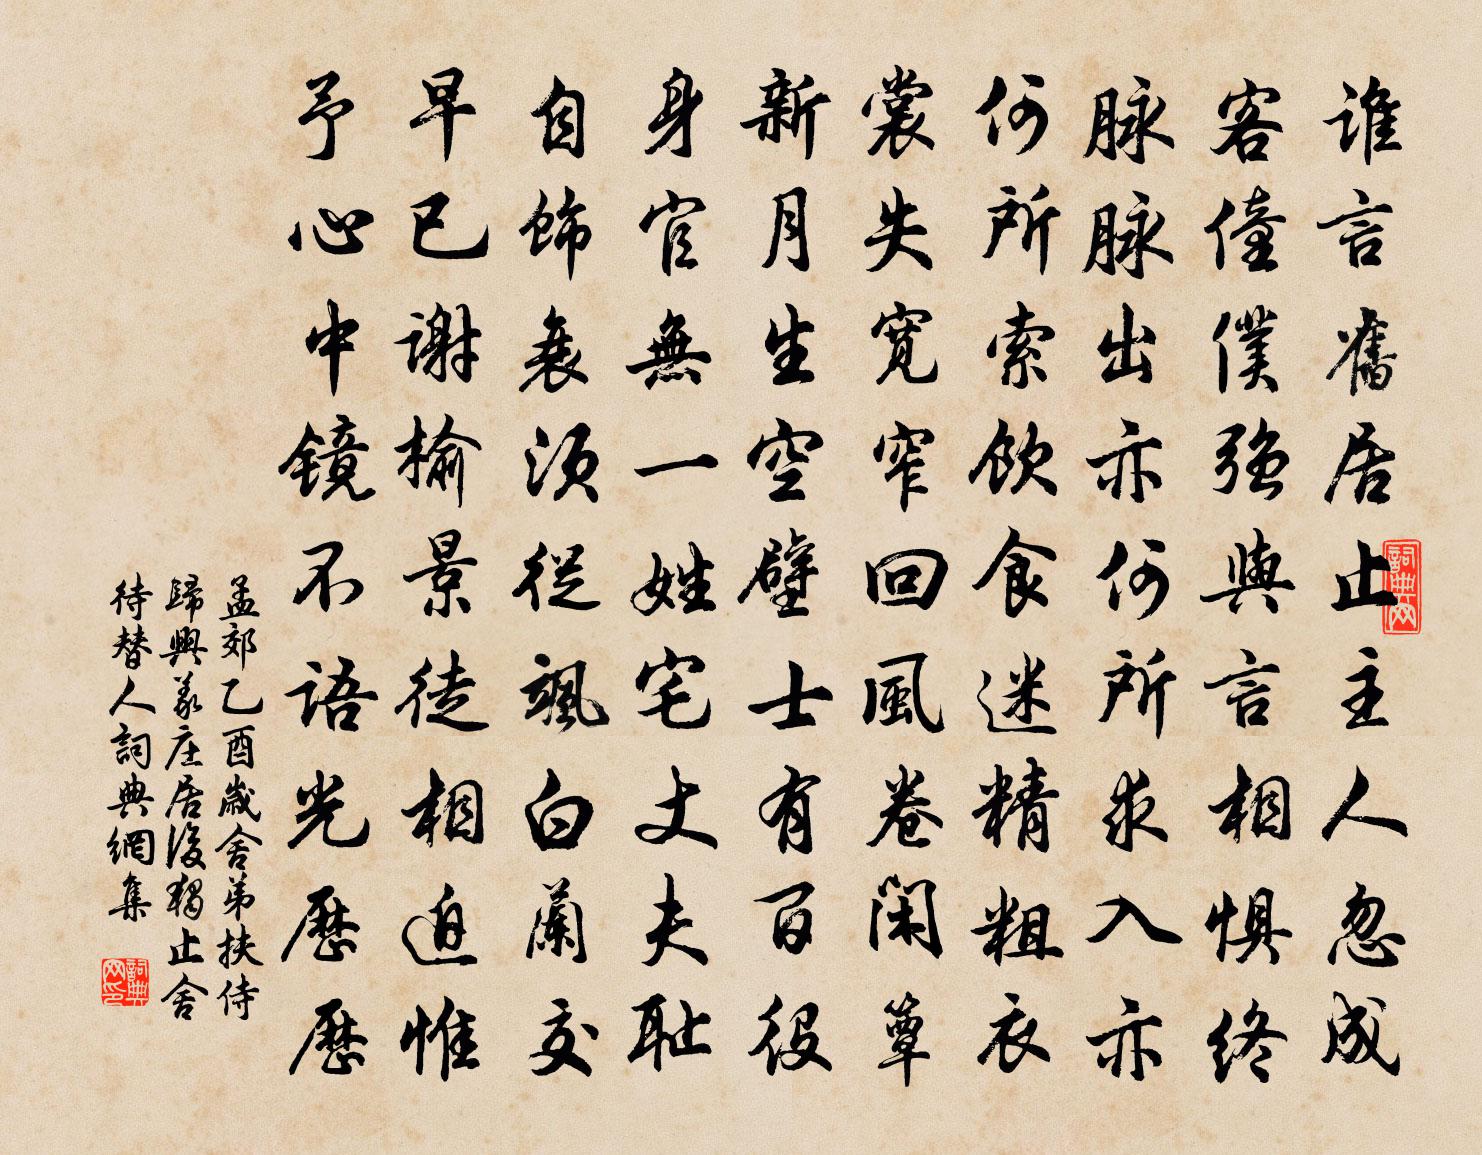 誰言舊居止主人忽成
客僮僕強與言相懼終
脉脉出亦何所求入亦
何所索飲食迷精粗衣
裳失寬窄回風卷閑簟
新月生空壁士有百役
身官無一姓宅丈夫耻
自飾衰須從颯白蘭交
早已謝榆景徒相迫惟
予心中鏡不語光歷歷
孟郊乙酉歲舍弟扶侍
歸興義庄居後獨止舍
待替人詞典網集
詞典网
詞典网印